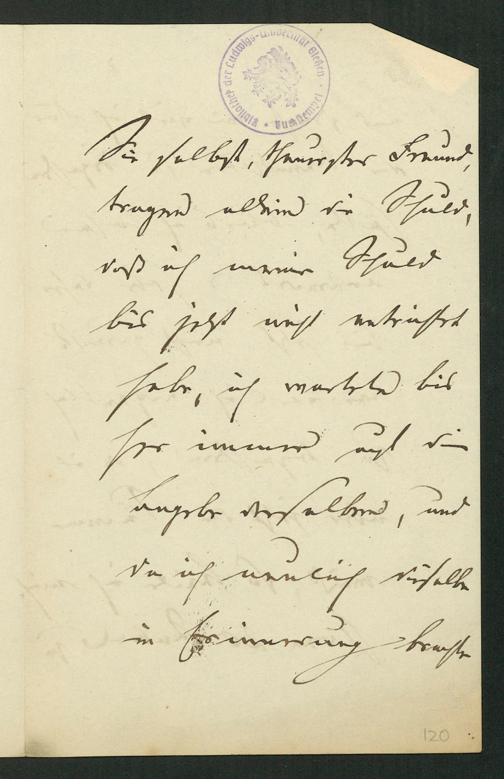 Bibliothek der Ludwigs-Universität Gießen
Sie selbst, theuerster Freund,
tragen allein die Schuld,
daß ich meine Schuld
bis jetzt nicht entrichtet
habe, ich wartete bis
her immer auf die
Angabe derselben, und
da ich neulich dieselbe
in Erinnerung brachte
120